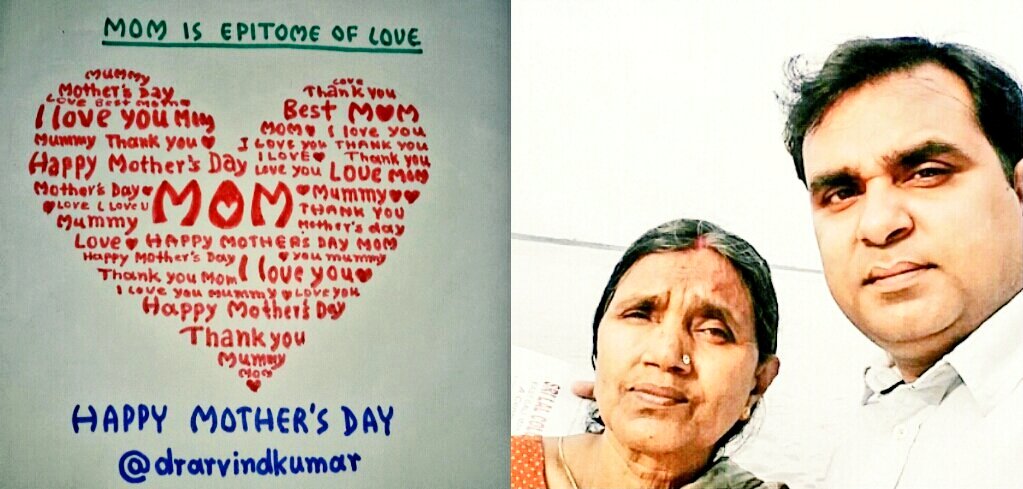 MOM IS EPITOME OF LOVE
Mummy
Mother's Day
Love Best Mom
I love you Mom
Mummy Thank you
Happy Mother's Day
Mother's Day
Love I Love U
Mummy
Love
Thank you
Best MOM
MOM I love you
I LOVE YOU THANK YOU
I LOVE Thank you
Love you Love Mom
MOM
Mummy
THANK YOU
Mother's day
HAPPY MOTHER'S DAY MOM
Happy Mother's Day you mummy
Thank you Mom I love you
I love you Mummy Love you
Happy Mother's Day
Thank you
Mummy
Mom
HAPPY MOTHER'S DAY
@drarvindkumar
SRI LAL COL